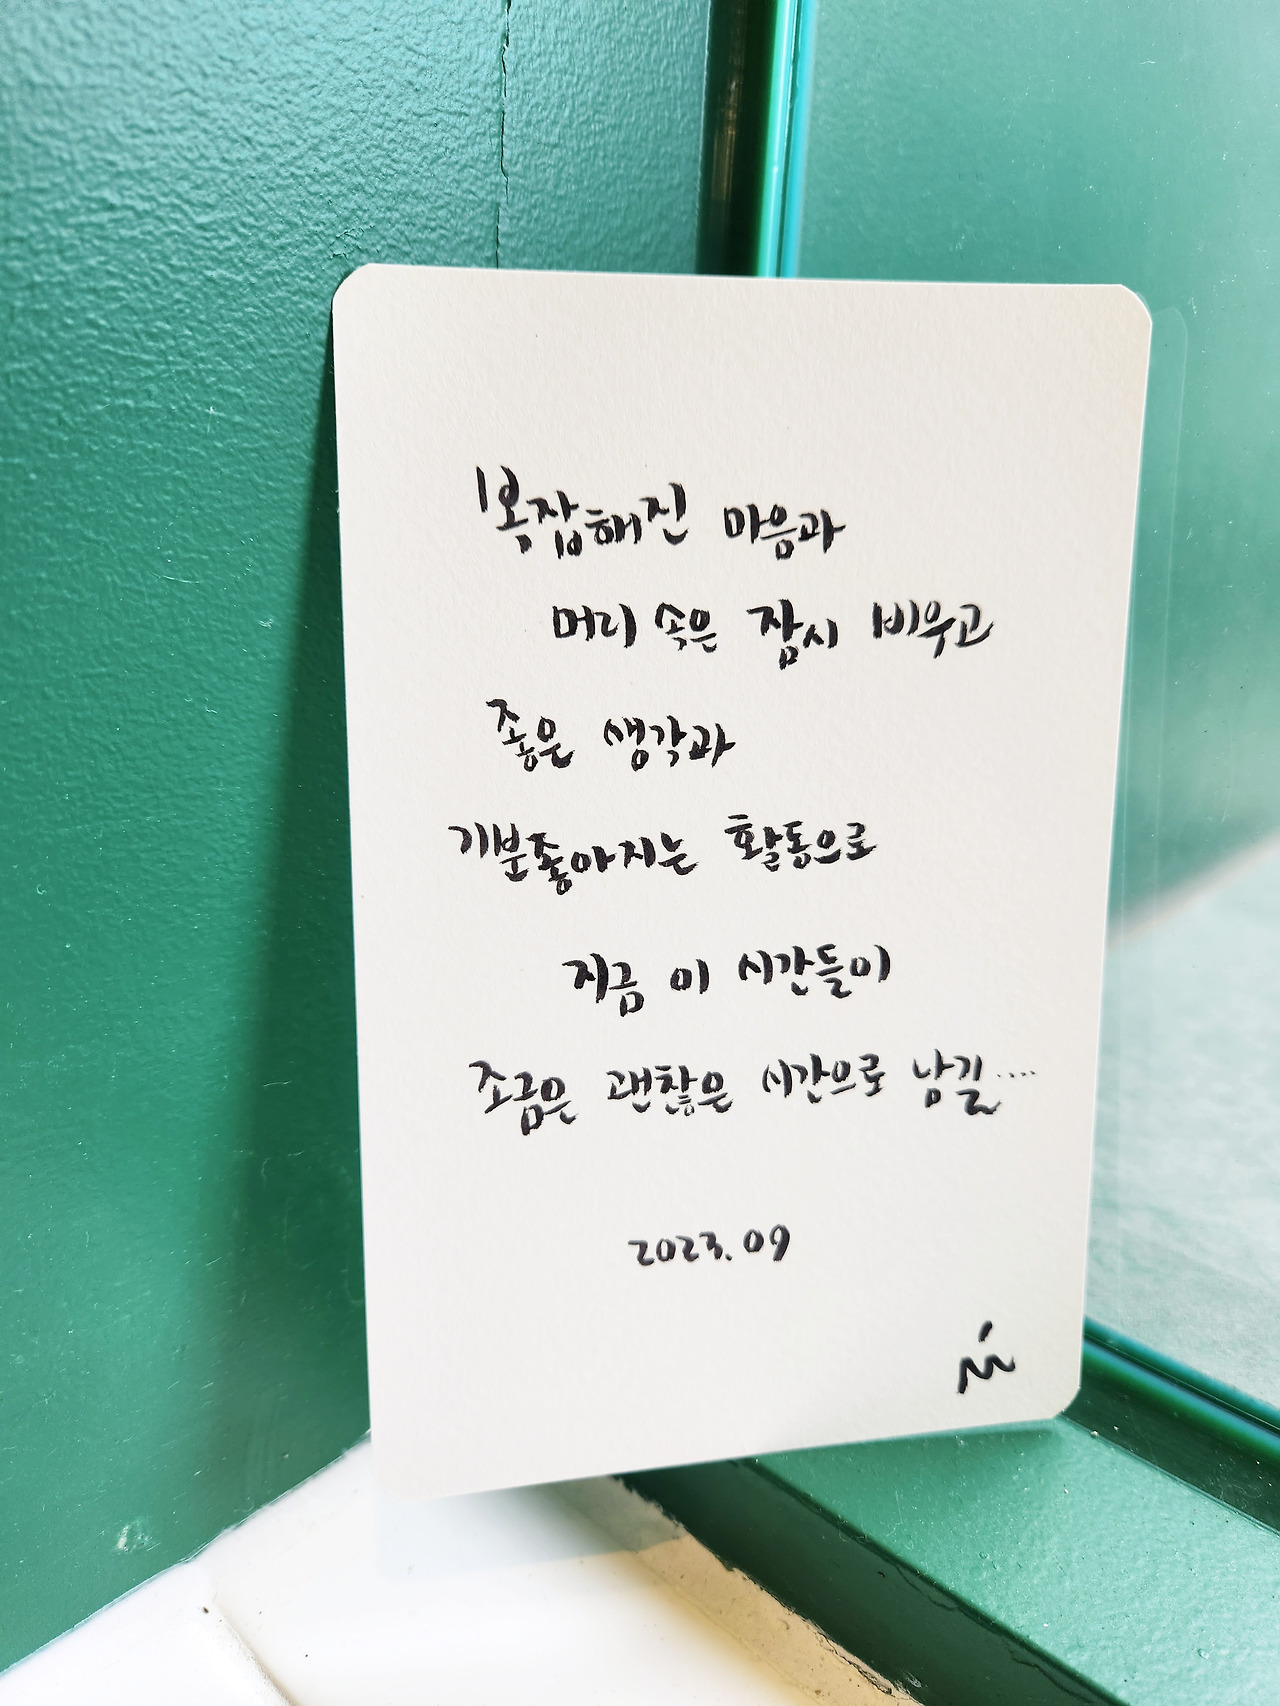 복잡해진 마음과
머리 속은 잠시 비우고
좋은 생각과
기분좋아지는 활동으로
지금 이 시간들이
조금은 괜찮은 시간으로 남길....
2023. 09